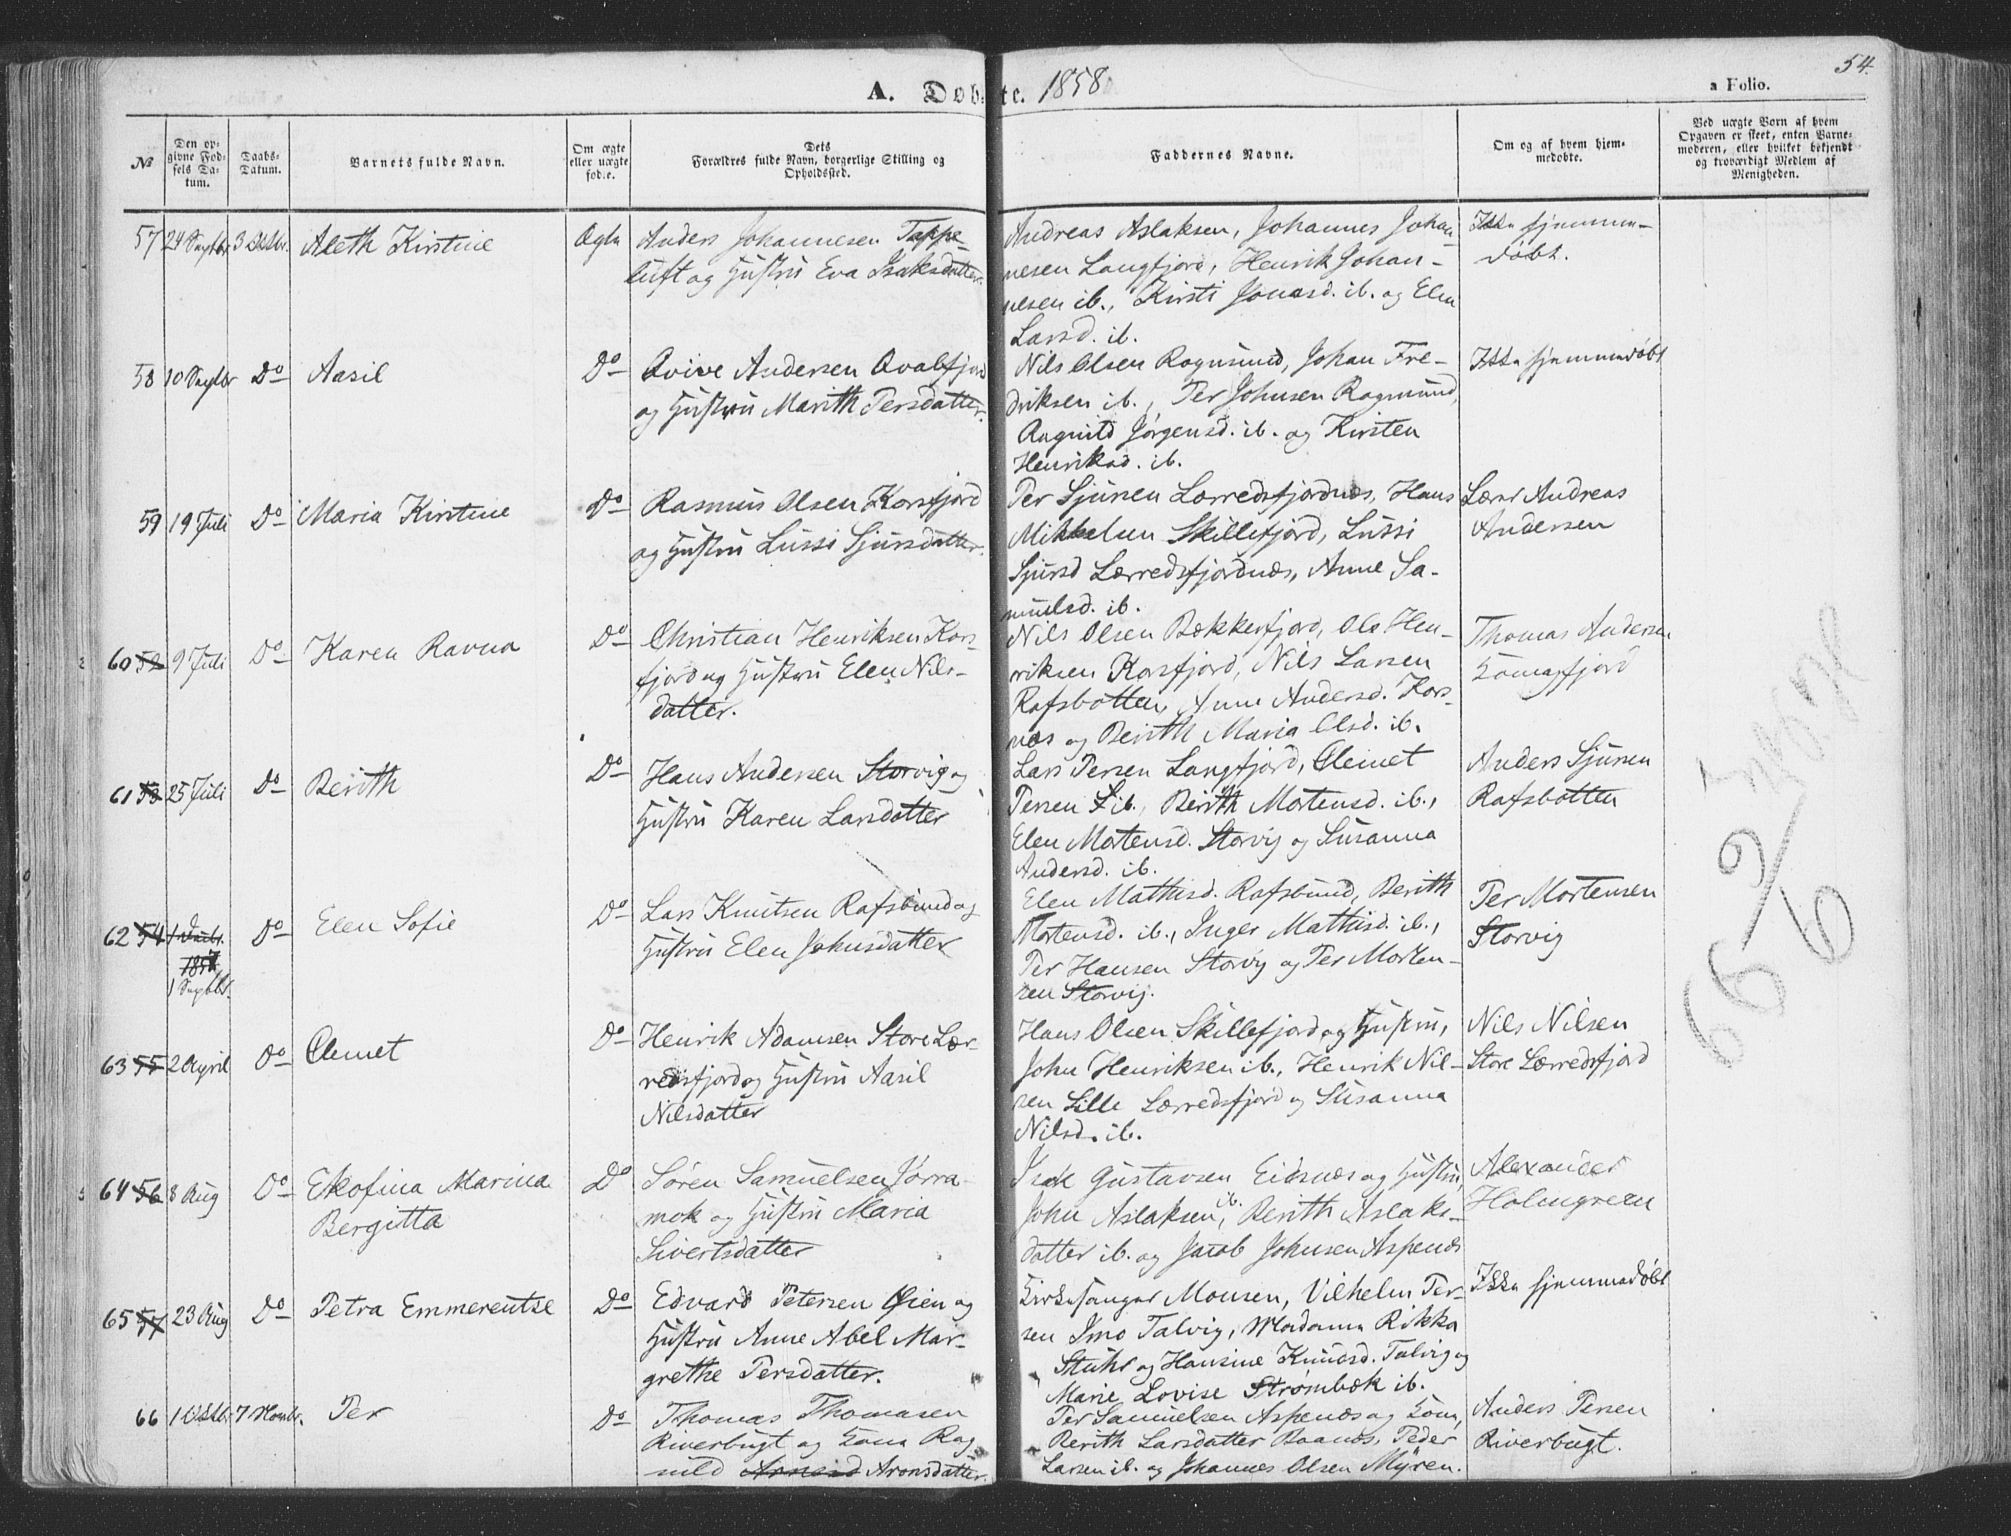 54.
A. Døbte. 1858
a Folio.
No
Den opgivne Fødsels Datum.
Daabs-Datum.
Barnets fulde Navn.
Om ægte eller uægte fødte.
Dets Forældres fulde Navn, borgerlige Stilling og Opholdssted.
Faddernes Navne.
Om og af hvem hjemmedøbte.
Ved uægte Børn af hvem Opgaven er skeet, enten Barnemoderen, eller hvilket bekjendt og troværdigt Medlem af Menigheden.
57 24 Septbr 3 Octbr. Aleth Kirstine Ægte
Anders Johannesen Tappe-
luft og Hustru Eva Isaksdatter.
Andreas Aslaksen, Johannes Johan-
nesen Langfjord, Henrik Johan-
nesen ib., Kirsti Jonasd. ib. og Elen
Larsd. ib.
Ikke hjemme-
døbt.
58 10 Septbr Do Aasil Do
Qvive Andersen Qvalfjord
og Hustru Marith Persdatter.
Nils Olsen Rognsund, Johan Fre-
driksen ib., Per Johnsen Rognsund,
Ragnild Jørgensd. ib. og Kirsten
Henriksd. ib.
Ikke hjemmedøbt
59 19 Juli Do Maria Kirstine Do
Rasmus Olsen Korsfjord
og Hustru Lussi Sjursdatter.
Per Sjursen Lerredsfjordnæs, Hans
Mikkelsen Skillefjord, Lussi
Sjursd Lærredsfjordnæs, Anne Sa-
muelsd. ib.
Lærer Andreas
Andersen
60 52 9 Juli Do Karen Ravna Do
Christian Henriksen Kors-
fjord og Hustru Elen Nils-
datter.
Nils Olsen Bækkerfjord, Ole Hen-
riksen Korsfjord, Nils Larsen
Rafsbotten, Anne Andersd. Kors-
næs og Berith Maria Olsd. ib.
Thomas Andersen
Komagfjord
61 53 25 Juli Do Berith Do
Hans Andersen Storvig og
Hustru Karen Larsdatter
Lars Persen Langfjord, Clemet
Persen ib., Berith Mortensd. ib.,
Elen Mortensd. Storvig og Susanna
Andersd. ib.
Anders Sjursen
Rafsbotten
62 54 1 Decbr.
1857
1 Septbr.
Do Elen Sofie Do
Lars Knutsen Rafsbund og
Hustru Elen Johnsdatter
Elen Mathisd. Rafsbund, Berith
Mortensd. ib., Inger Mathisd. ib.,
Per Hansen Storvig og Per Morten-
sen Storvig.
Per Mortensen
Storvig
63 55 2 April Do Clemet Do
Henrik Adamsen Store Lær-
redsfjord og Hustru Aasil
Nilsdatter
Hans Olsen Skillefjord og Hustru,
John Henriksen ib., Henrik Nil-
sen Lille Lærredsfjord og Susanna
Nilsd. ib.
Nils Nilsen
Store Lærredsfjord
64 56 8 Aug Do Ekofina Marina
Bergitta Do
Søren Samuelsen Jorra-
mok og Hustru Maria
Sivertsdatter
Isak Gustavsen Eidsnæs og Hustru,
John Aslaksen ib., Berith Aslaks-
datter ib. og Jacob Johnsen Aspenæs
Alexander
Holmgreen
65 57 23 Aug Do Petra Emmerentse Do
Edvard Petersen Øien og
Hustru Anne Abel Mar-
grethe Persdatter.
Kirkesanger Monsen, Vilhelm Per-
sen Imo Talvig, Madame Rikka
Stuhr og Hansine Knudsd. Talvig og
Marie Lovise Strømbæk ib.
Ikke hjemmedøbt
66 1 Octbr 7 Novbr. Per Do
Thomas Thomasen
Riverbugt og Kone Rag
nild Arnesd Aronsdatter.
Per Samuelsen Aspenæs og Kone,
Berith Larsdatter Baanæs, Peder
Larsen ib. og Johannes Olsen Myren.
Anders Persen
Riverbugt.